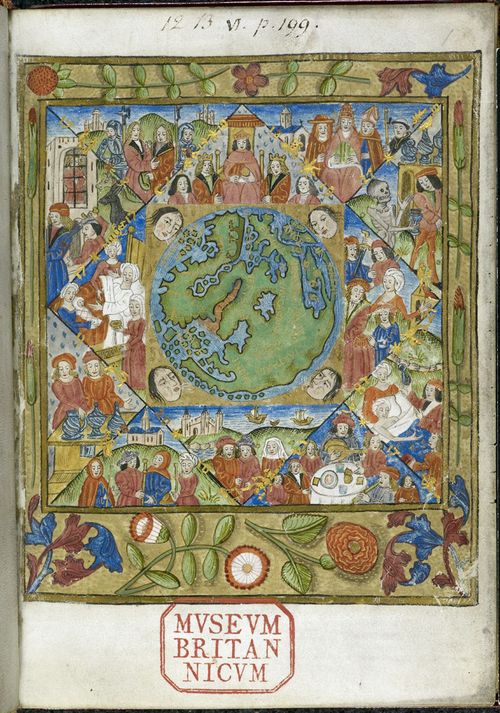 12 B VI. p. 199.
MVSEVM
BRITAN
NICVM